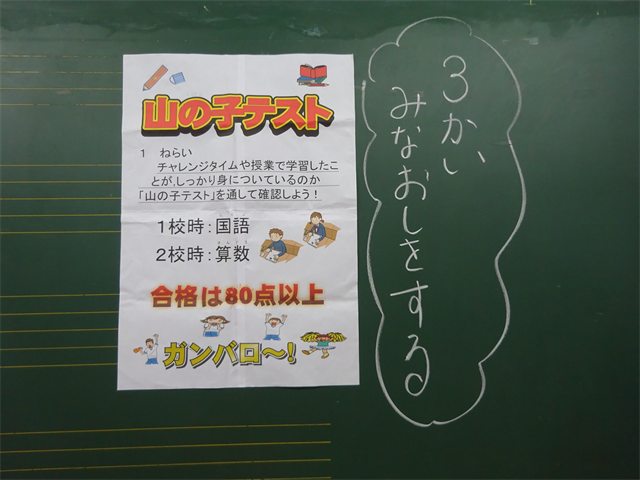 山の子テスト
1 ねらい
チャレンジタイムや授業で学習したこ
とが、しっかり身についているのか
「山の子テスト」を通して確認しよう！
1校時：国語
2校時：算数
合格は80点以上
ガンバロ～！
3かい
みなおしをする